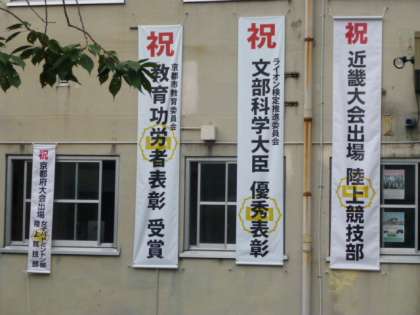 祝
近畿大会出場 陸上競技部
祝
ライオン検定推進委員会
文部科学大臣 優秀表彰
祝
京都市教育委員会
教育功労者表彰 受賞
祝
京都府大会出場
女子バドミントン部
陸上競技部